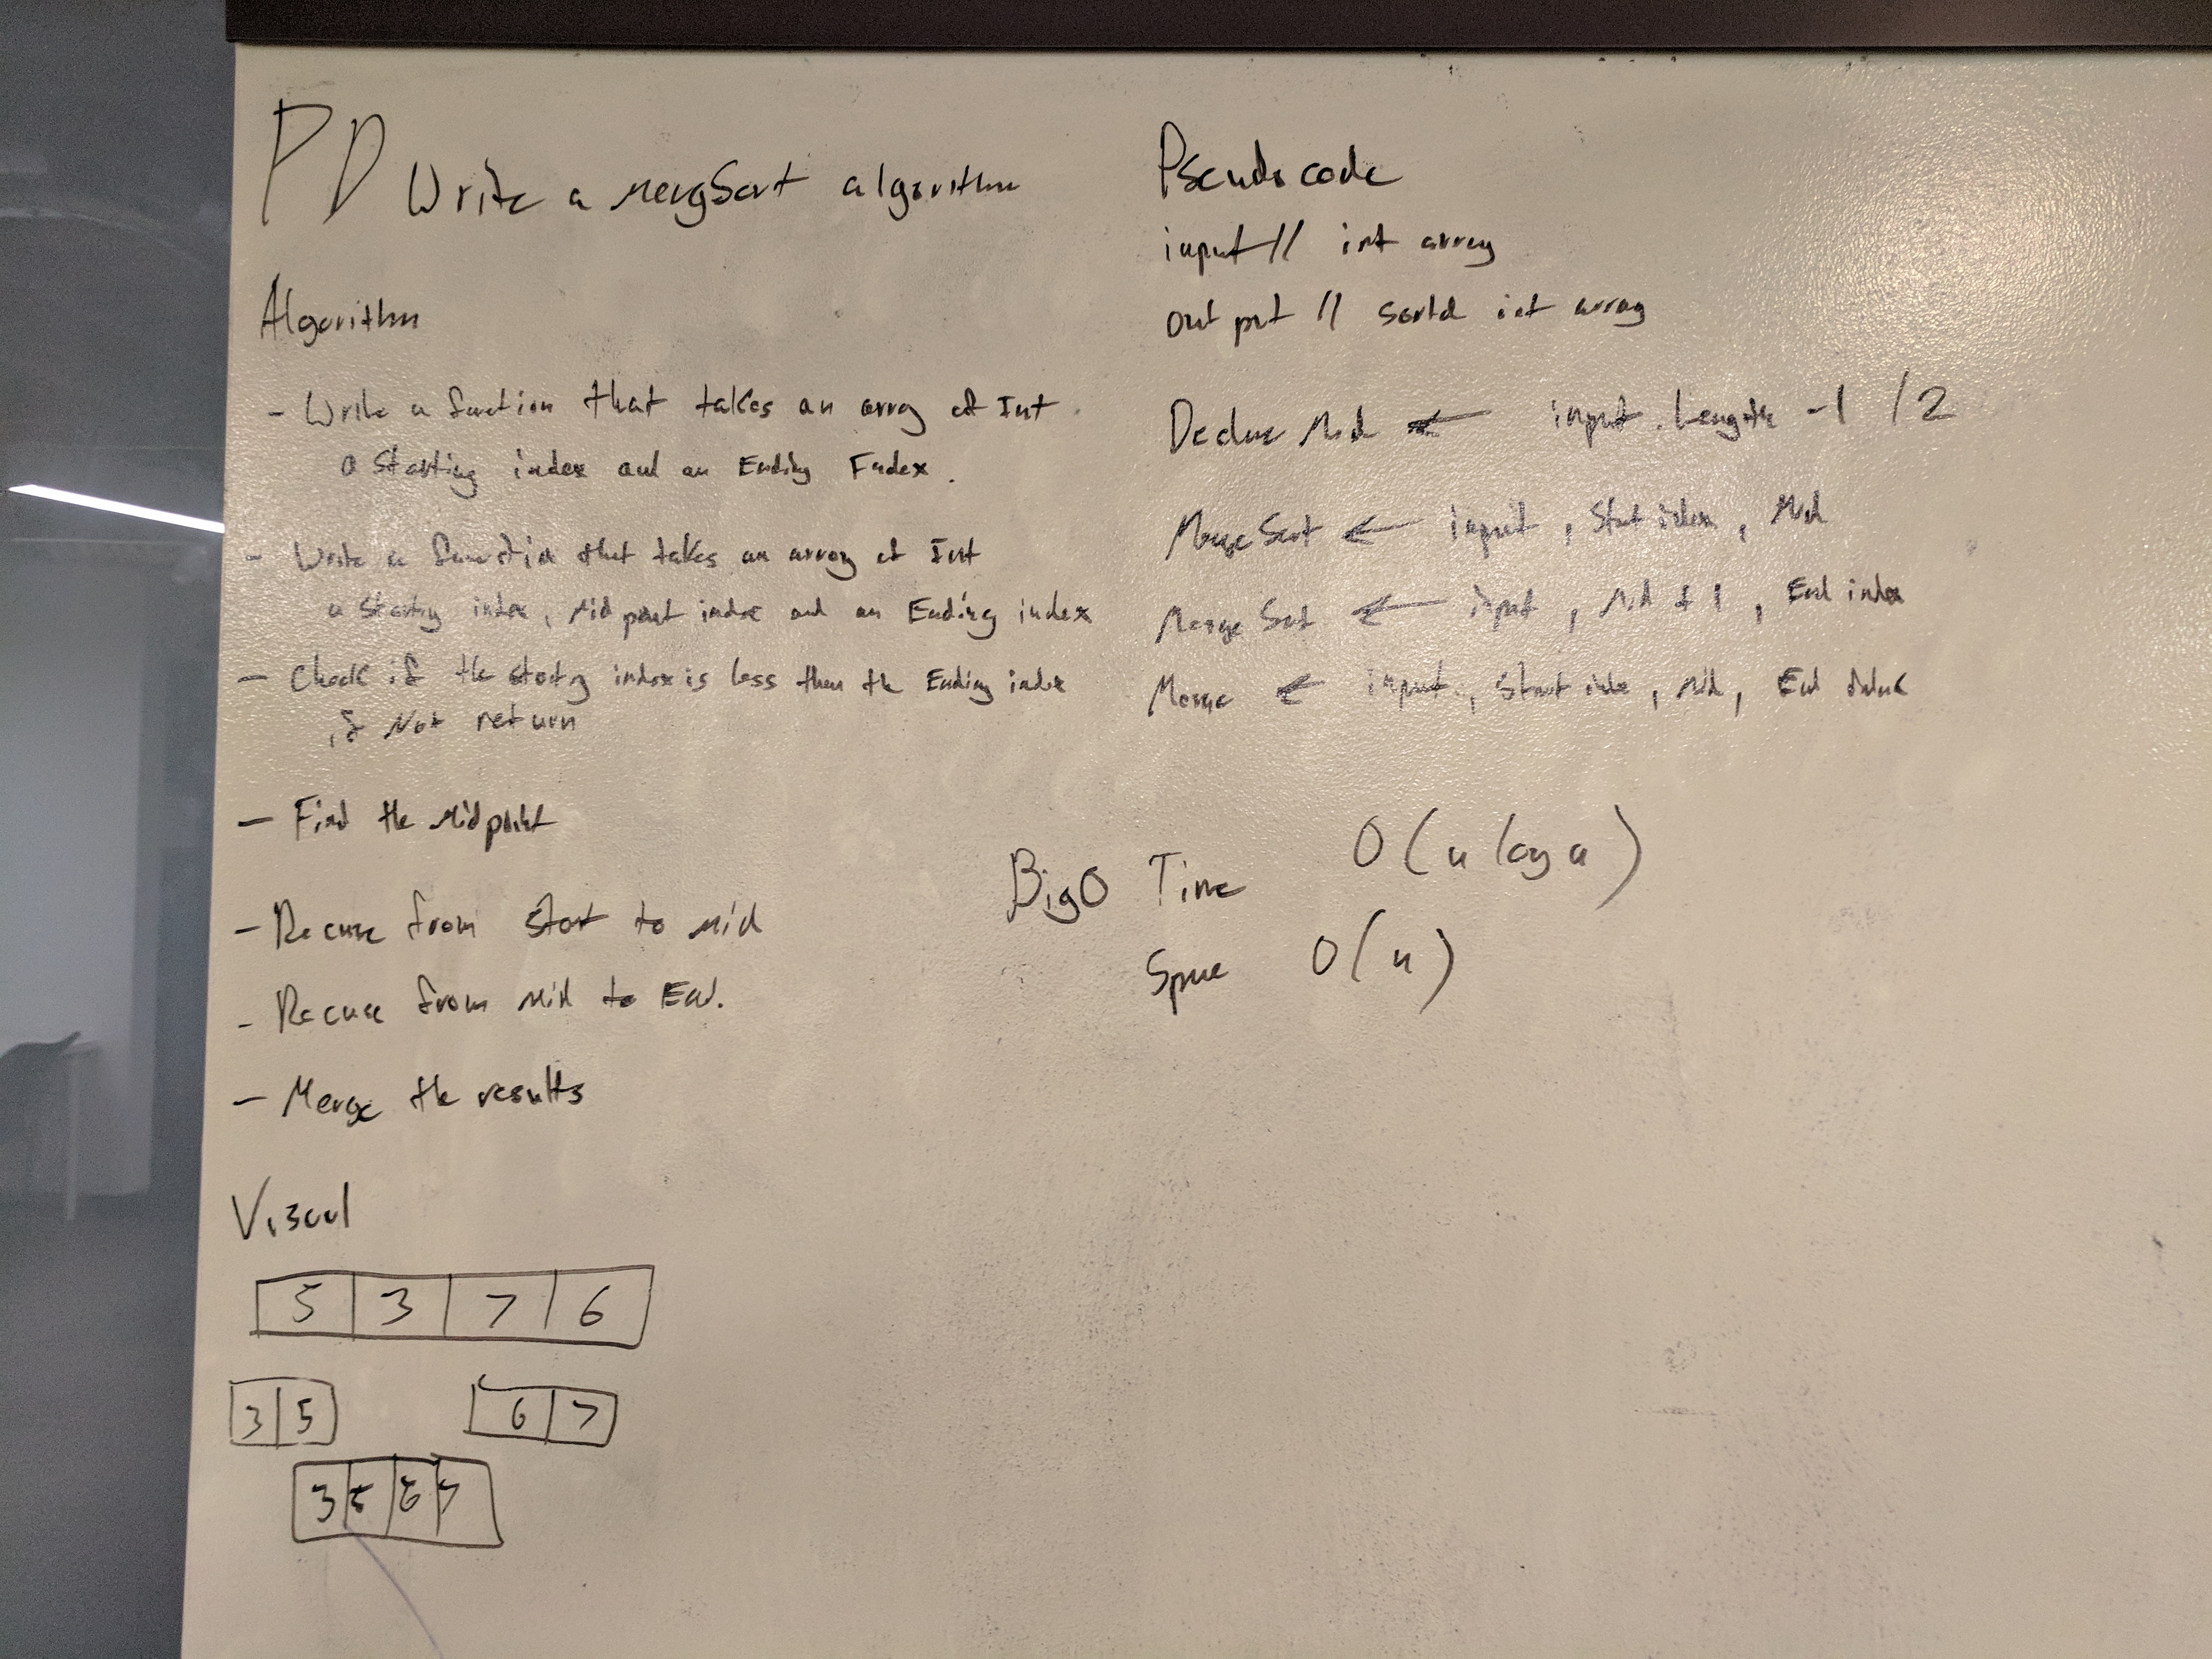 PD Write a mergSort algorithm
Algorithm
- Write a function that takes an array of Int
a Starting index and an Ending Index.
- Write a function that takes an array of Int
a Starting index, Midpoint index and an Ending index
- Check if the starting index is less then the Ending index
if Not return
- Find the Midpoint
- Recurse from start to mid
- Recurse from Mid to End.
- Merge the results
Visual
5 3 7 6
3 5 6 7
3 5 6 7
Pseudocode
input // int array
output // sorted int array
Declare Mid ← input.Length -1 /2
MergeSort ← input, Start index, Mid
MergeSort ← input, Mid + 1, End index
Merge ← input, Start index, Mid, End index
BigO Time O(n log n)
Space O(n)